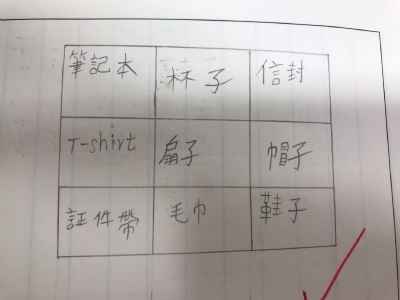 筆記本 杯子 信封
T-shirt 扇子 帽子
証件帶 毛巾 鞋子